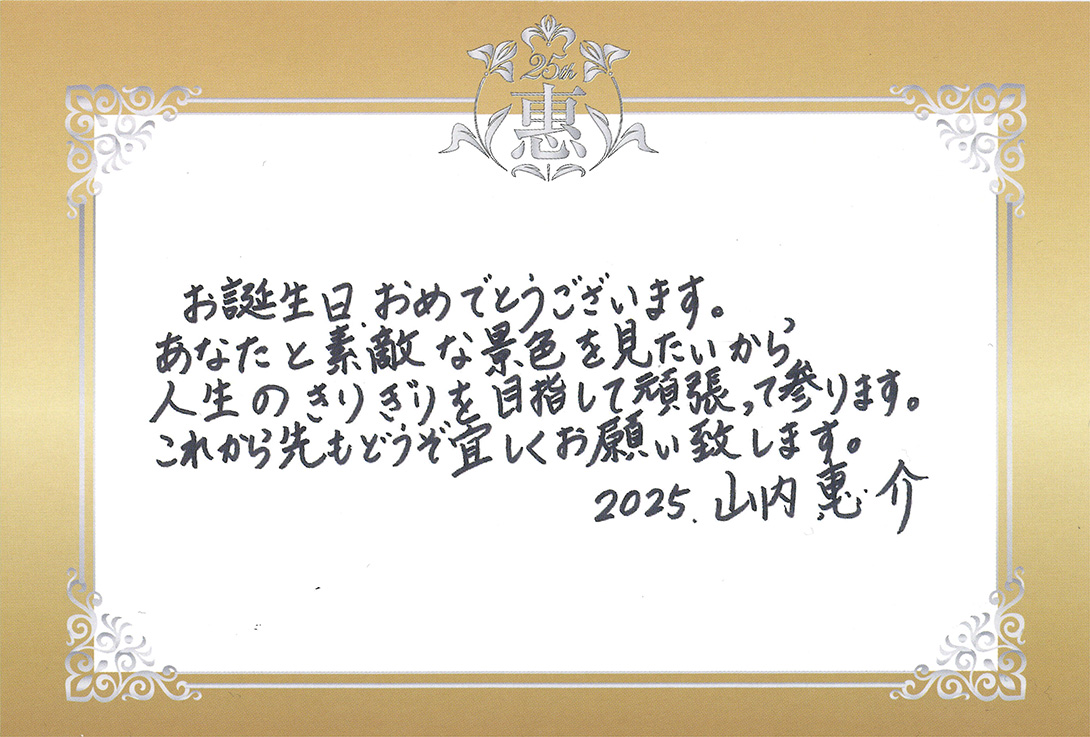 25th
惠
お誕生日おめでとうございます。
あなたと素敵な景色を見たいから、
人生のきりぎりを目指して頑張って参ります。
これから先もどうぞ宜しくお願い致します。
2025. 山内惠介